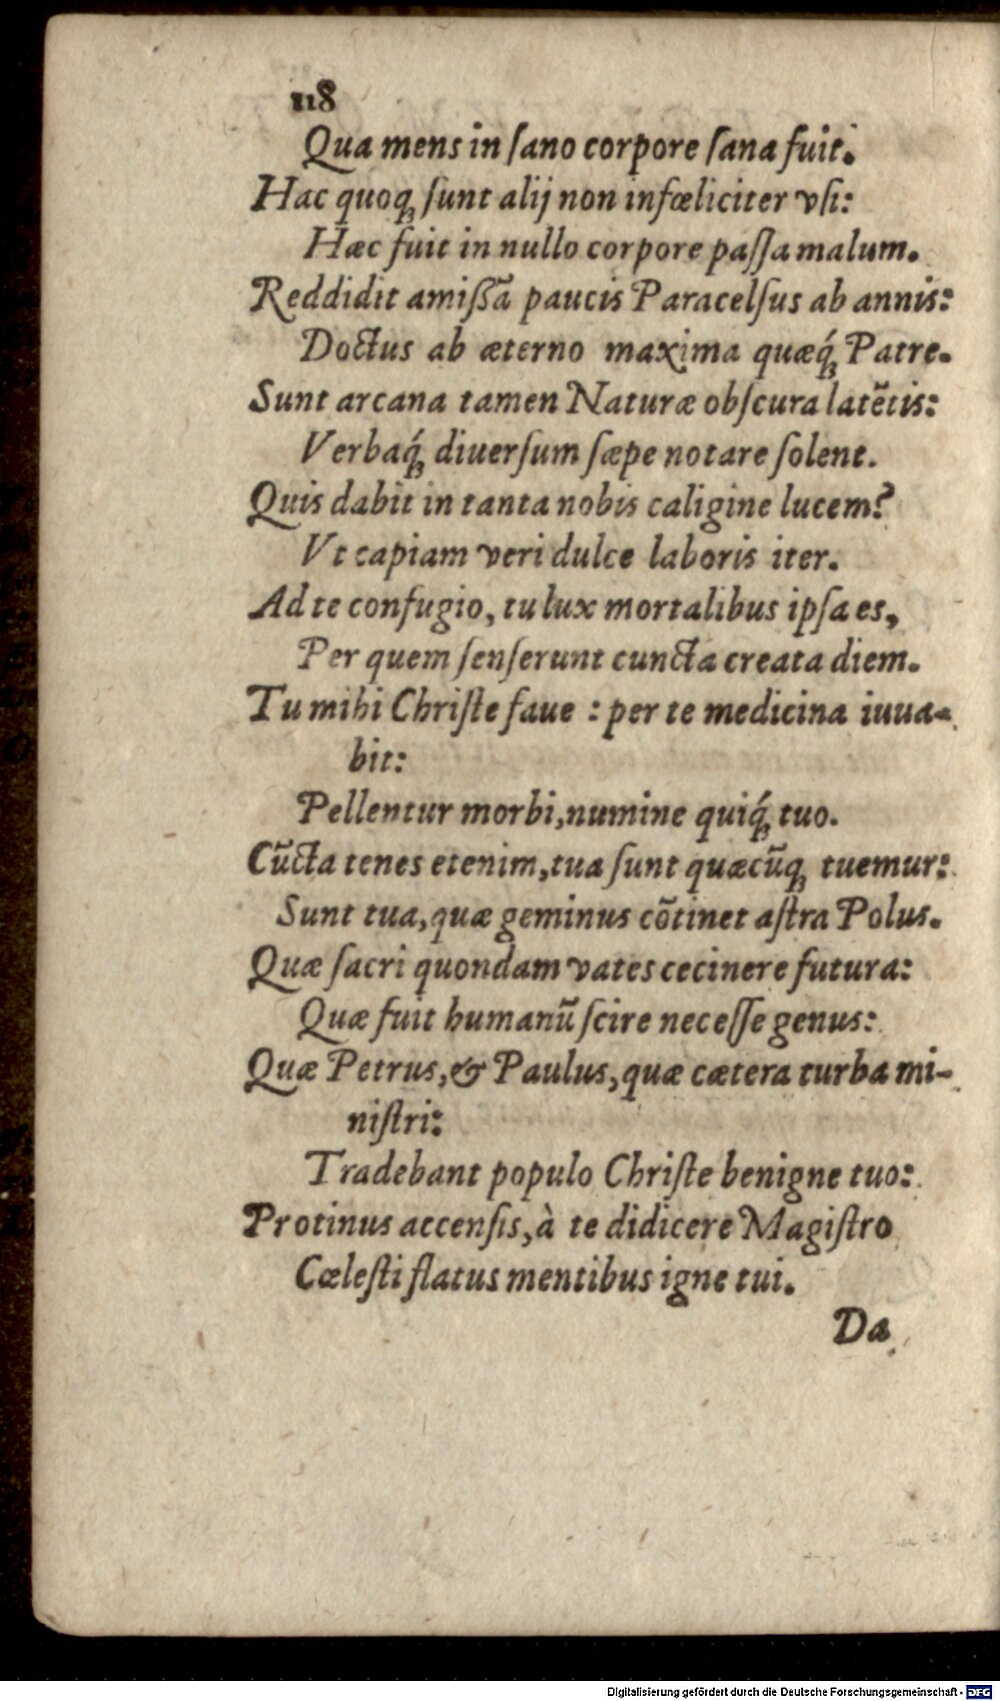 118
Qua mens in ſano corpore ſana fuit.
Hac quoqꝫ ſunt alij non infœliciter vſi:
Hæc fuit in nullo corpore paſſa malum.
Reddidit amißã paucis Paracelſus ab annis:
Doctus ab æterno maxima quæq́ꝫ Patre.
Sunt arcana tamen Naturæ obſcura latẽtis:
Verbaq́ꝫ diuerſum ſæpe notare ſolent.
Quis dabit in tanta nobis caligine lucem?
Vt capiam veri dulce laboris iter.
Ad te confugio, tu lux mortalibus ipſa es,
Per quem ſenſerunt cuncta creata diem.
Tu mihi Chriſte faue : per te medicina iuua-
bit:
Pellentur morbi, numine quiq́ꝫ tuo.
Cũcta tenes etenim, tua ſunt quæcũqꝫ tuemur:
Sunt tua, quæ geminus cõtinet aſtra Polus.
Quæ ſacri quondam vates cecinere futura:
Quæ fuit humanũ ſcire neceſſe genus:
Quæ Petrus, & Paulus, quæ cætera turba mi-
niſtri:
Tradebant populo Chriſte benigne tuo:
Protinus accenſis, à te didicere Magiſtro
Cœleſti flatus mentibus igne tui.
Da
Digitalisierung gefördert durch die Deutsche Forschungsgemeinschaft - DFG